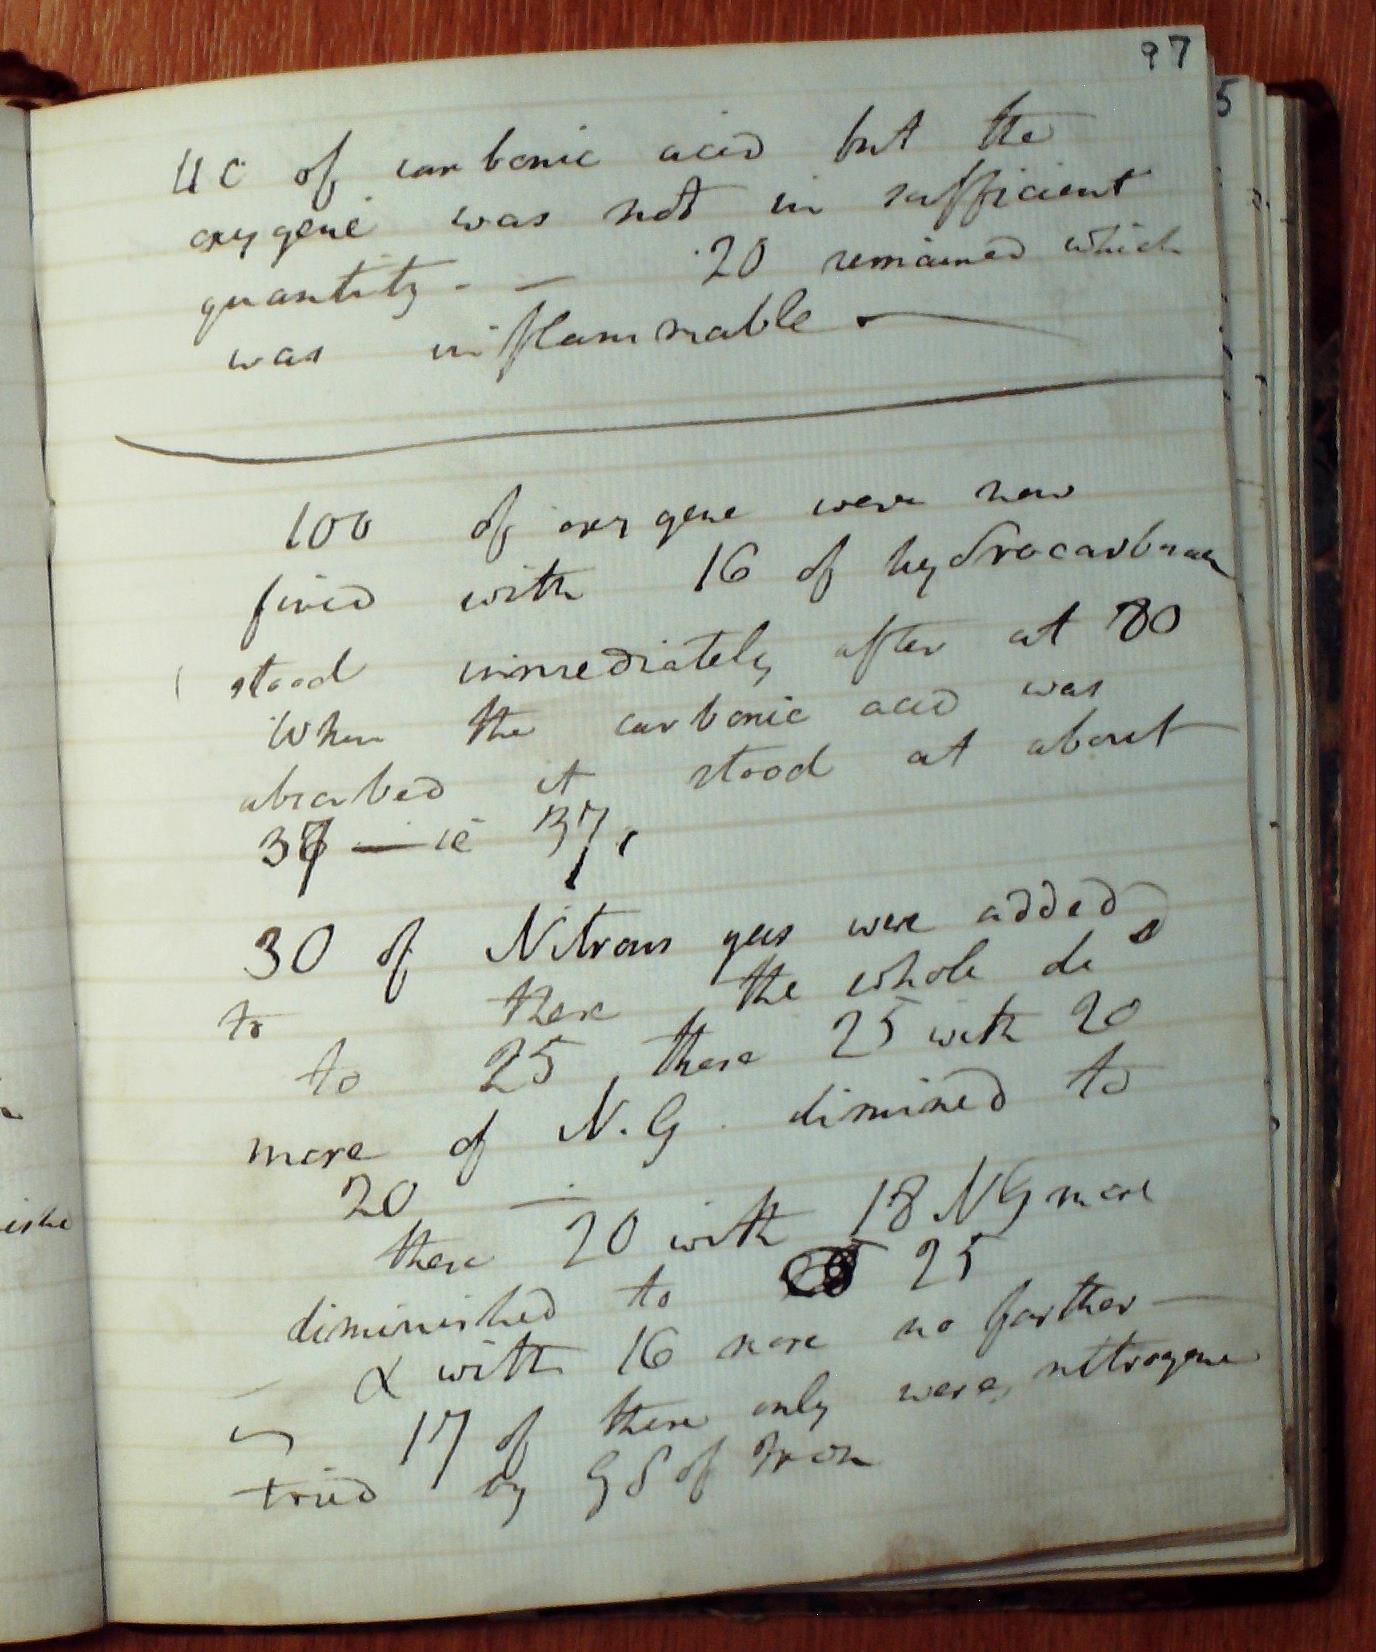 97
of carbonic acid but the
oxygene was not in sufficient
quantity - — 20 remained which
was inflammable —
100 of oxygene were now
fired with 16 of hydrocarbonate
stood immediately after at 80
When the carbonic acid was
absorbed it stood at about
37 — ie 37,
30 of Nitrous gas were added
to these the whole de
to 25 these 25 with 20
more of N.G. diminned to
20 —
these 20 with 18 NG more
diminished to 25
& with 16 more no farther —
17 of these only were nitrogene
tried by G S of Iron
5
ishe